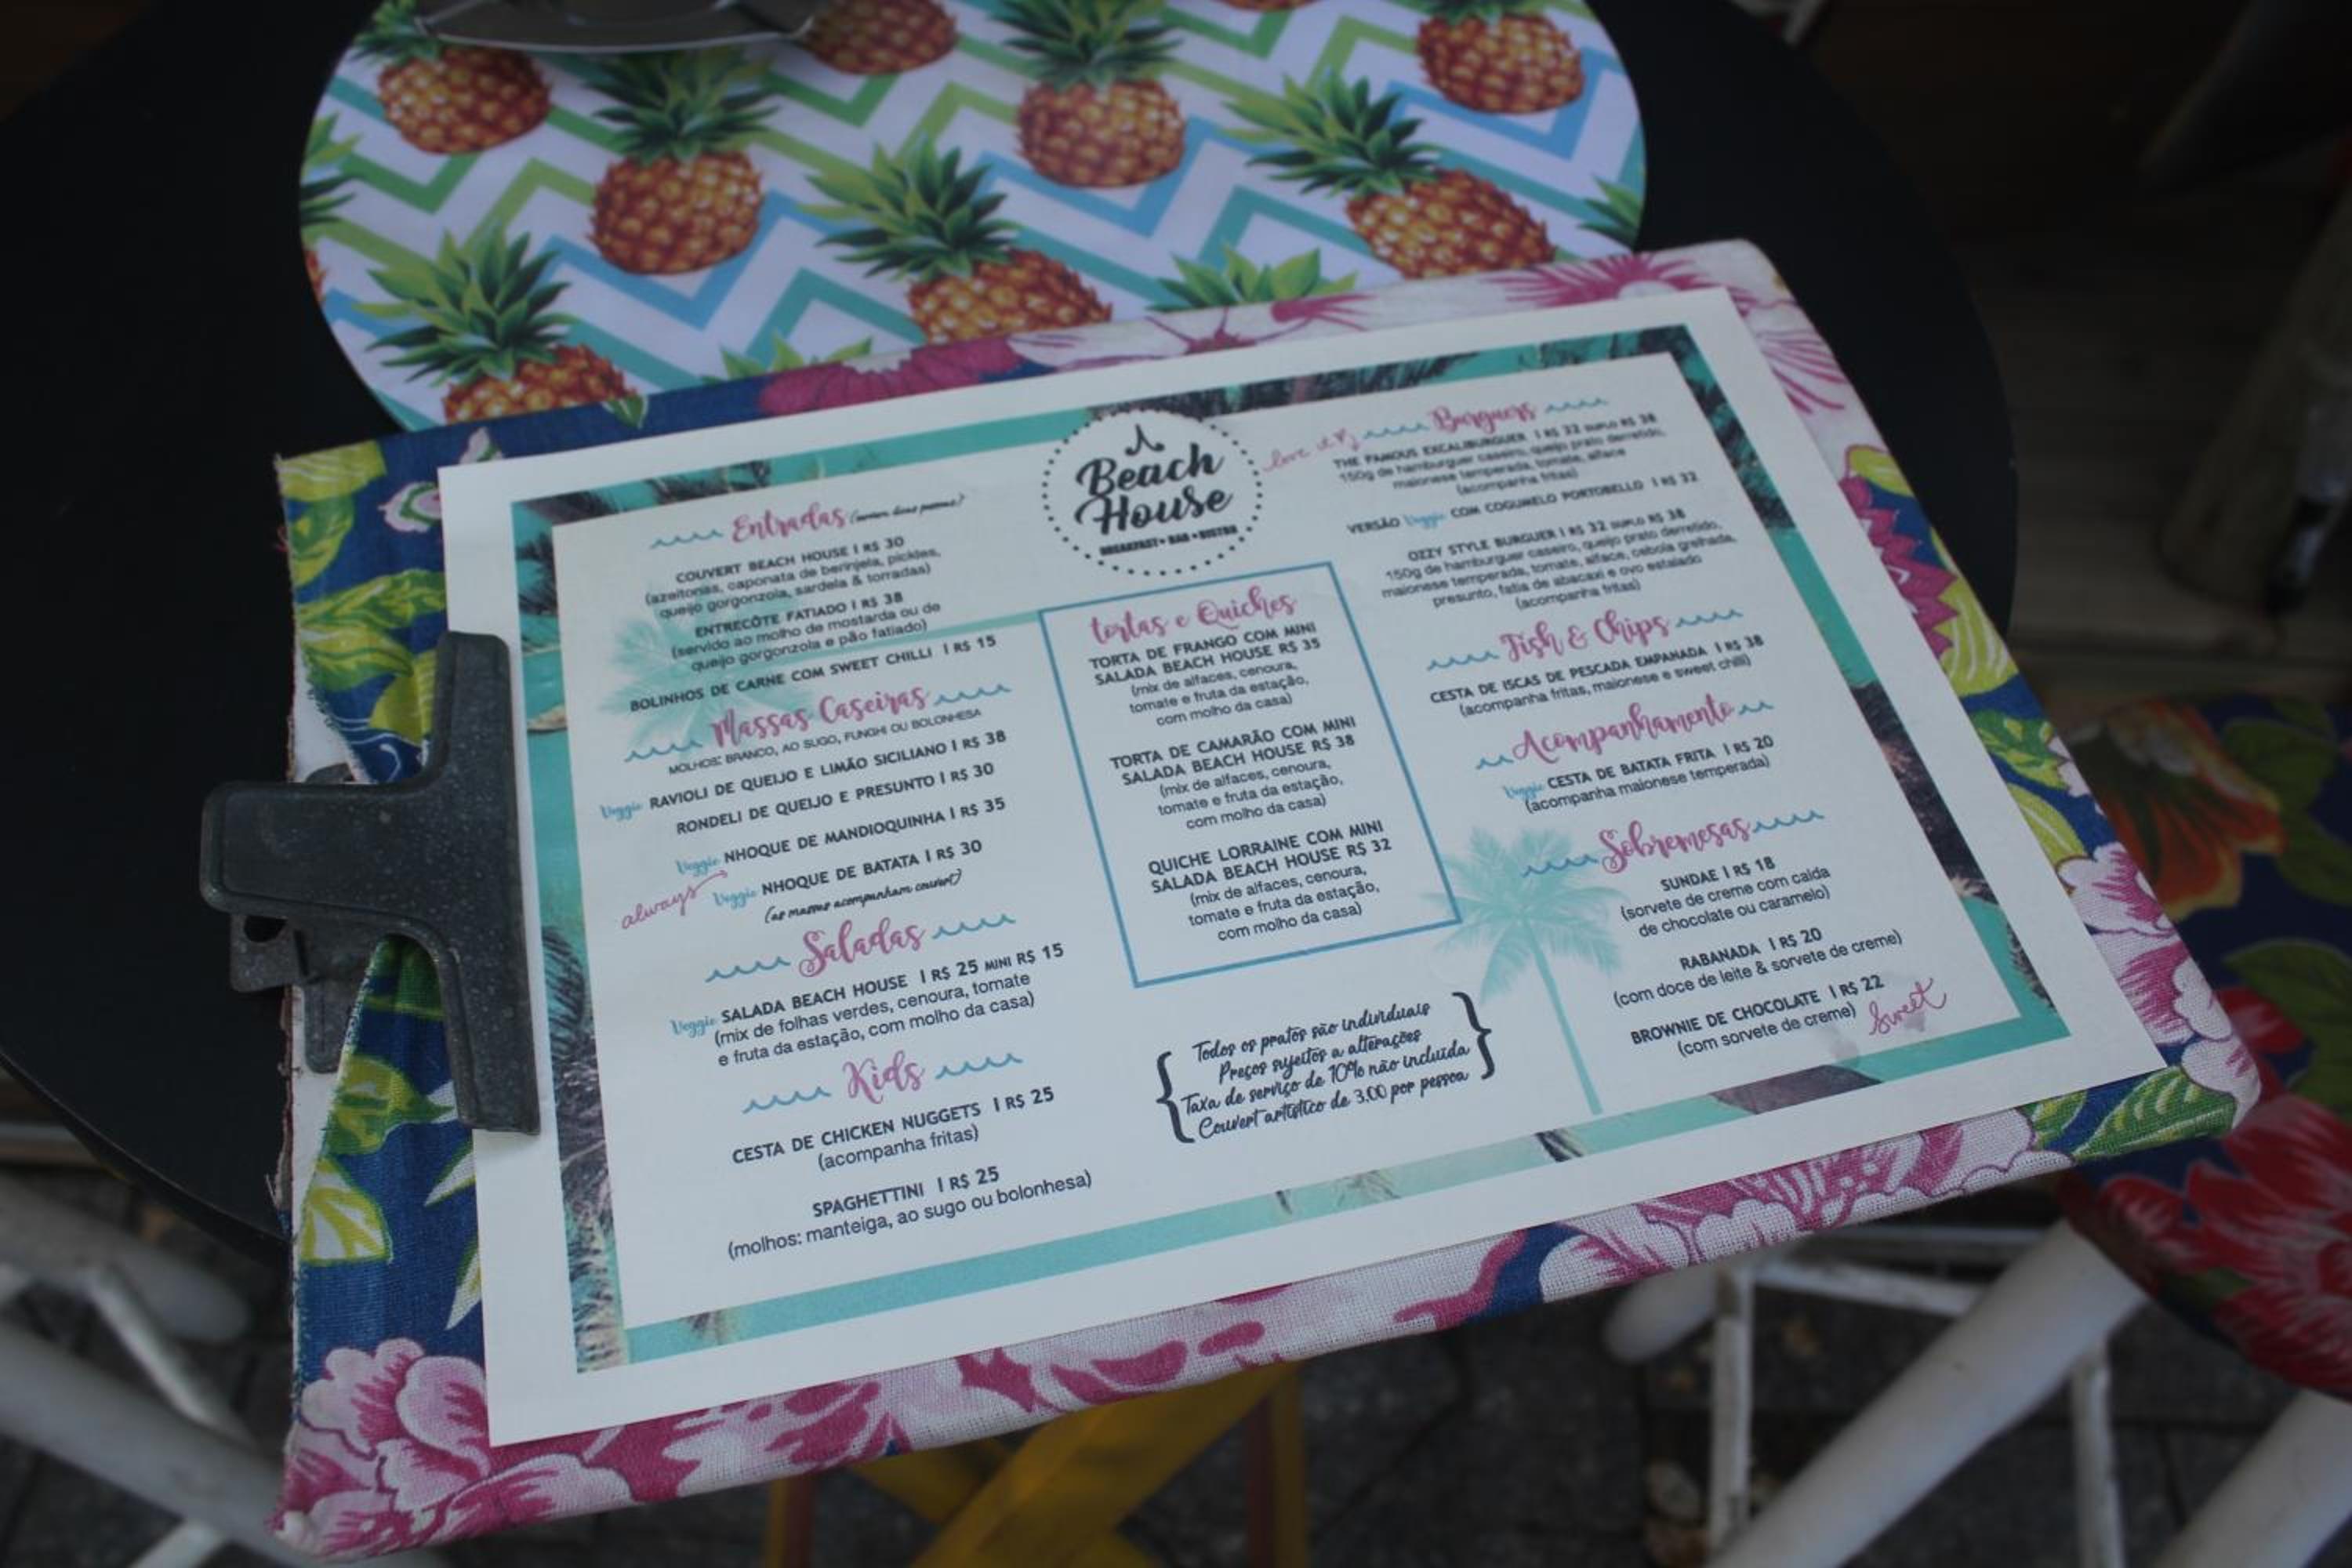 Beach
House
BREAKFAST • BAR • BISTRO
Entradas (servem duas pessoas)
COUVERT BEACH HOUSE | R$ 30
(azeitonas, caponata de berinjela, pickles,
queijo gorgonzola, sardela & torradas)
ENTRECÔTE FATIADO | R$ 38
(servido ao molho de mostarda ou de
queijo gorgonzola e pão fatiado)
BOLINHOS DE CARNE COM SWEET CHILLI | R$ 15
Massas Caseiras
MOLHOS: BRANCO, AO SUGO, FUNGHI OU BOLONHESA
Veggie RAVIOLI DE QUEIJO E LIMÃO SICILIANO | R$ 38
RONDELI DE QUEIJO E PRESUNTO | R$ 30
Veggie NHOQUE DE MANDIOQUINHA | R$ 35
always Veggie NHOQUE DE BATATA | R$ 30
(as massas acompanham couvert)
Saladas
Veggie SALADA BEACH HOUSE | R$ 25 MINI R$ 15
(mix de folhas verdes, cenoura, tomate
e fruta da estação, com molho da casa)
Kids
CESTA DE CHICKEN NUGGETS | R$ 25
(acompanha fritas)
SPAGHETTINI | R$ 25
(molhos: manteiga, ao sugo ou bolonhesa)
tortas e Quiches
TORTA DE FRANGO COM MINI
SALADA BEACH HOUSE R$ 35
(mix de alfaces, cenoura,
tomate e fruta da estação,
com molho da casa)
TORTA DE CAMARÃO COM MINI
SALADA BEACH HOUSE R$ 38
(mix de alfaces, cenoura,
tomate e fruta da estação,
com molho da casa)
QUICHE LORRAINE COM MINI
SALADA BEACH HOUSE R$ 32
(mix de alfaces, cenoura,
tomate e fruta da estação,
com molho da casa)
Todos os pratos são individuais
Preços sujeitos a alterações
Taxa de serviço de 10% não incluída
Couvert artístico de 3.00 por pessoa
love it Burguers
THE FAMOUS EXCALIBURGUER | R$ 32 DUPLO R$ 38
150g de hamburguer caseiro, queijo prato derretido,
maionese temperada, tomate, alface
(acompanha fritas)
VERSÃO Veggie COM COGUMELO PORTOBELLO | R$ 32
OZZY STYLE BURGUER | R$ 32 DUPLO R$ 38
150g de hamburguer caseiro, queijo prato derretido,
maionese temperada, tomate, alface, cebola grelhada,
presunto, fatia de abacaxi e ovo estalado
(acompanha fritas)
Fish & Chips
CESTA DE ISCAS DE PESCADA EMPANADA | R$ 38
(acompanha fritas, maionese e sweet chilli)
Acompanhamento
Veggie CESTA DE BATATA FRITA | R$ 20
(acompanha maionese temperada)
Sobremesas
SUNDAE | R$ 18
(sorvete de creme com calda
de chocolate ou caramelo)
RABANADA | R$ 20
(com doce de leite & sorvete de creme)
BROWNIE DE CHOCOLATE | R$ 22
(com sorvete de creme) Sweet